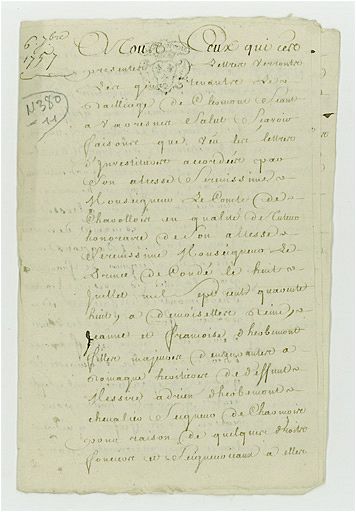 6 7bre
1757
N380
A Tous Ceux qui ces
presentes Lettres Verront
Les gens tenants Le
Bailliage de Chaumont Seant
a Varennes Salut Scavoir
faisons que Vu les lettres
d'Investiture accordées par
Son altesse Serenissime
Monseigneur Le Comte de
Charollois en qualité de tuteur
honoraire de Son altesse
Serenissime Monseigneur Le
Prince de Condé le huit
Juillet mil Sept cent quarante
huit a demoiselles Reine
Jeanne et francoise
filles majeures demeurantes a
Romagne heritieres de deffunt
Messire adrien
chevalier Seigneur de
pour raison de quelques droits
fonciers et Seigneuriaux a elles